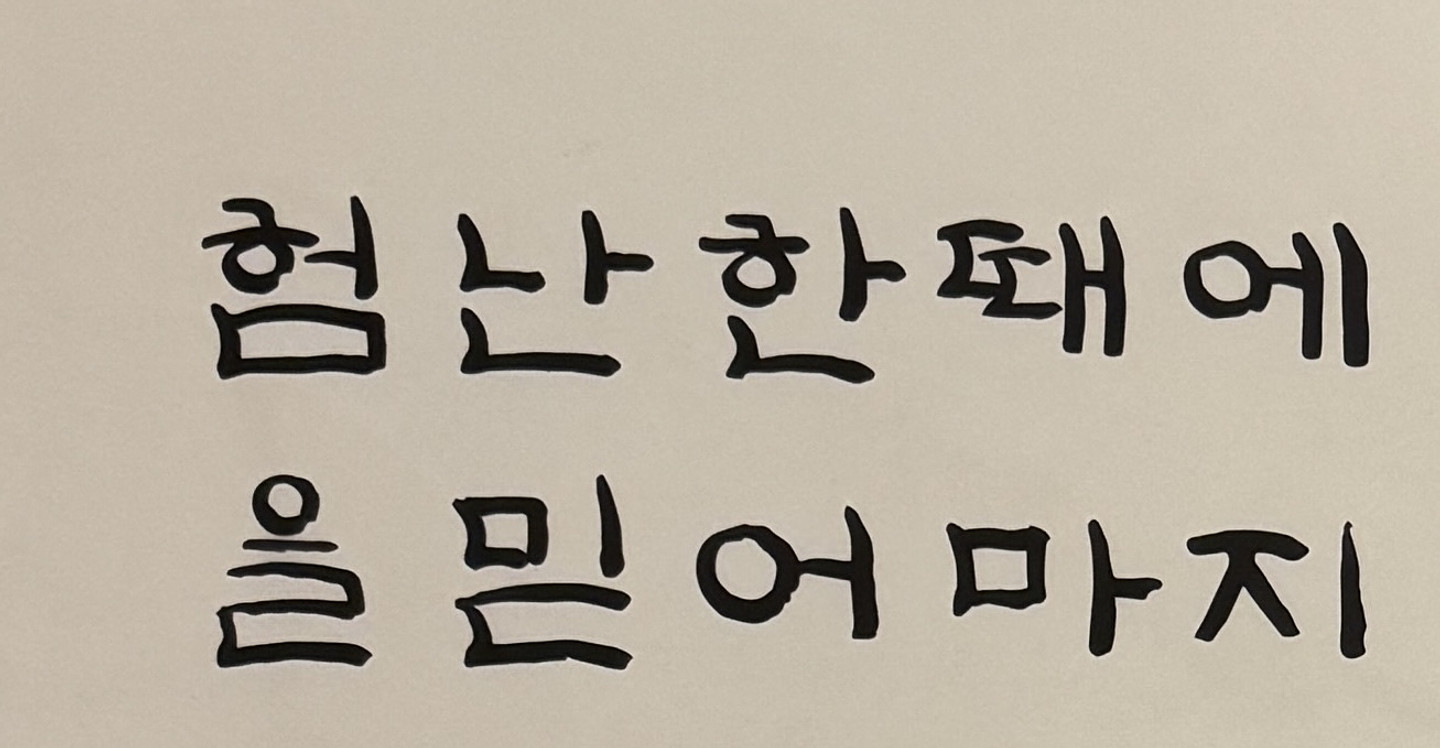 험난한때에
을믿어마지